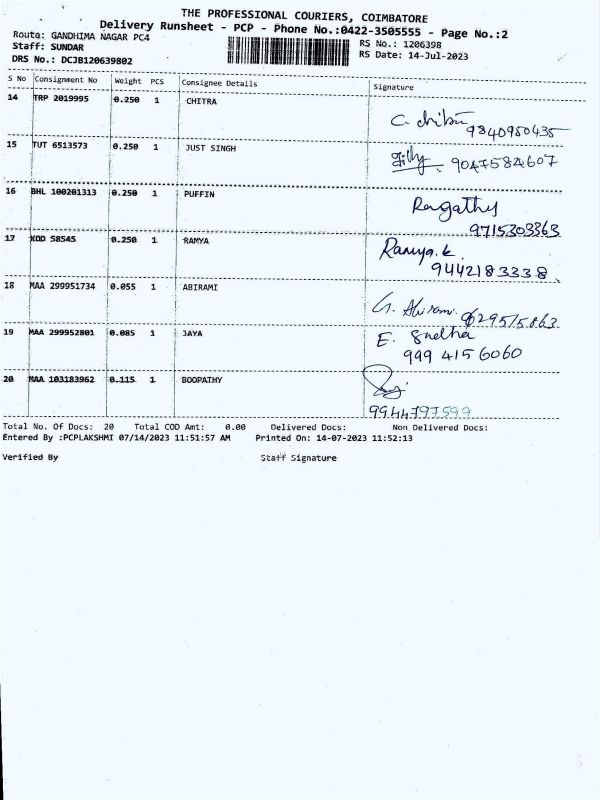 THE PROFESSIONAL COURIERS, COIMBATORE
Delivery Runsheet - PCP - Phone No.:0422-3505555 - Page No.:2
Route: GANDHIMA NAGAR PC4
RS No.: 1206398
Staff: SUNDAR
RS Date: 14-Jul-2023
DRS No.: DCJB120639802
S No Consignment No Weight PCS Consignee Details Signature
14 TRP 2019995 0.250 1 CHITRA
9840950435
15 TUT 6513573 0.250 1 JUST SINGH
9047584607
16 BHL 100201313 0.250 1 PUFFIN
Ragathy
9715303363
17 KOD 58545 0.250 1 RAMYA
Ramya.k.
9442183338
18 MAA 299951734 0.055 1 ABIRAMI
G. Abirami 629575863
19 MAA 299952801 0.085 1 JAYA
E. Snetha
999 415 6060
20 MAA 103183962 0.115 1 BOOPATHY
9944797599
Total No. Of Docs: 20 Total COD Amt: 0.00 Delivered Docs: Non Delivered Docs:
Entered By :PCPLAKSHMI 07/14/2023 11:51:57 AM Printed On: 14-07-2023 11:52:13
Verified By Staff Signature